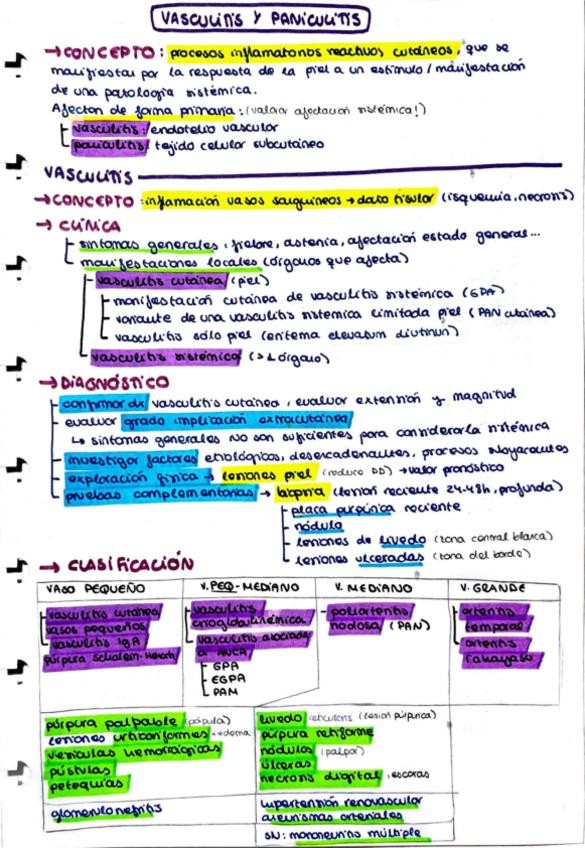 VASCULITIS Y PANICULITIS
→ CONCEPTO: procesos inflamatorios reactivos cutáneos, que se
manifiestan por la respuesta de la piel a un estímulo/manifestación
de una patología sistémica.
Afectan de forma primaria: (valorar afectación sistémica!)
vasculitis: endotelio vascular
paniculitis: tejido celular subcutáneo
VASCULITIS
→ CONCEPTO: inflamación vasos sanguíneos → daño tisular (isquemia, necrosis)
→ CLÍNICA
síntomas generales: fiebre, astenia, afectación estado general...
manifestaciones locales (órganos que afecta)
vasculitis cutánea (piel)
manifestación cutánea de vasculitis sistémica (GPA)
variante de una vasculitis sistémica limitada piel (PAN cutánea)
vasculitis sólo piel (eritema elevatum diutinum)
vasculitis sistémica (>1 órgano)
→ DIAGNÓSTICO
confirmar dx vasculitis cutánea, evaluar extensión y magnitud
evaluar grado implicación extracutánea
↳ síntomas generales NO son suficientes para considerarla sistémica
investigar factores etiológicos, desencadenantes, procesos subyacentes
exploración física → lesiones piel (reduce DD) → valor pronóstico
pruebas complementarias → biopsia (lesión reciente 24-48h, profunda)
placa purpúrica reciente
nódulo
lesiones de livedo (zona central blanca)
lesiones ulceradas (zona del borde)
→ CLASIFICACIÓN
VASO PEQUEÑO V. PEQ-MEDIANO V. MEDIANO V. GRANDE
vasculitis cutánea vasculitis - poliarteritis - arteritis
vasos pequeños crioglobulinémica nodosa (PAN) temporal
vasculitis IgA vasculitis asociada - arteritis
púrpura Schölein-Henoch a ANCA Takayasu
- GPA
- EGPA
- PAM
púrpura palpable (pápula) livedo reticularis (lesión purpúrica)
lesiones urticariformes → edema púrpura retiforme
vesículas hemorrágicas nódulos (palpar)
pústulas úlceras
petequias necrosis digital, escaras
glomerulonefritis hipertensión renovascular
aneurismas arteriales
SN: mononeuritis múltiple